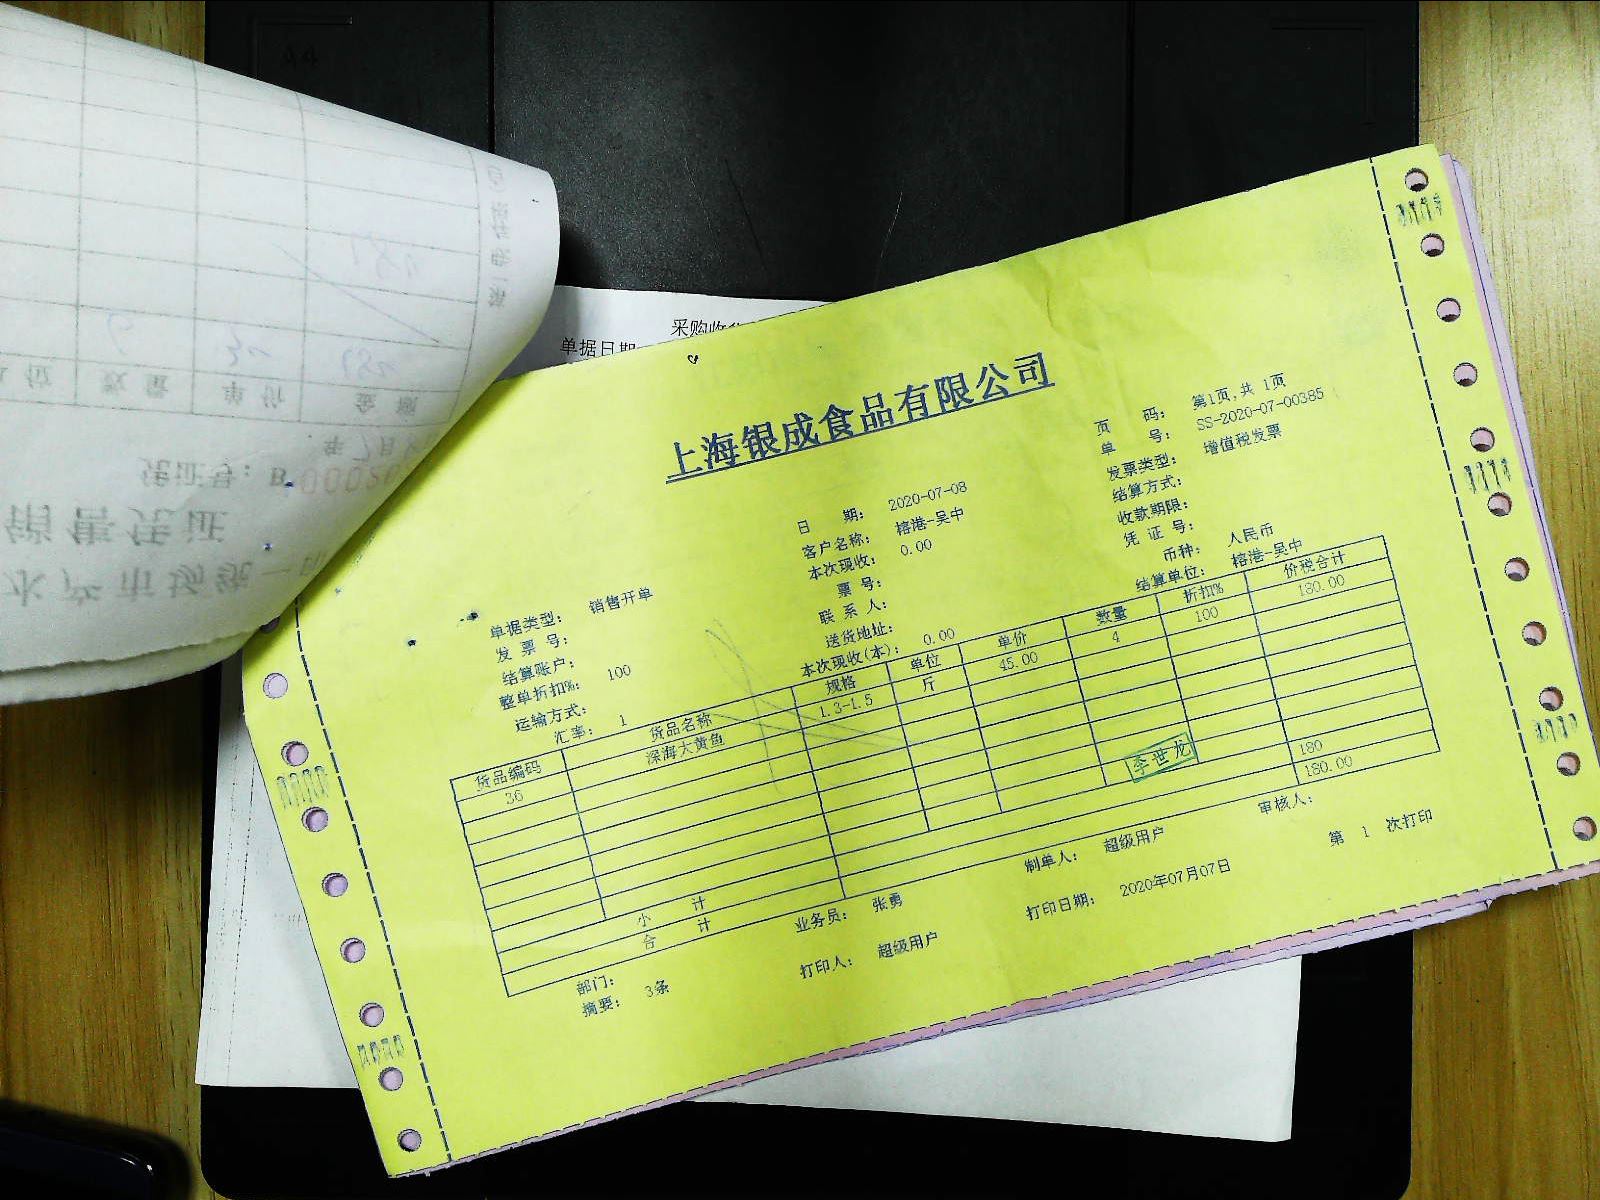 采购收
单据日期
上海银成食品有限公司
页 码: 第1页,共 1页
单 号: SS-2020-07-00385
发票类型: 增值税发票
结算方式:
收款期限:
凭 证 号:
币种: 人民币
结算单位: 榕港-吴中
日 期: 2020-07-08
客户名称: 榕港-吴中
本次现收: 0.00
票 号:
联 系 人:
送货地址:
本次现收(本): 0.00
单据类型: 销售开单
发 票 号:
结算账户:
整单折扣%: 100
运输方式:
汇率: 1
货品编码 货品名称 规格 单位 单价 数量 折扣% 价税合计
36 深海大黄鱼 1.3-1.5 斤 45.00 4 100 180.00
李世龙
小 计 180
合 计 180.00
部门: 业务员: 张勇 制单人: 超级用户 审核人:
摘要: 3条 打印人: 超级用户 打印日期: 2020年07月07日 第 1 次打印
水产市场统一
销售凭证
凭证号: B
年 7月
单位 数量 单价 金额